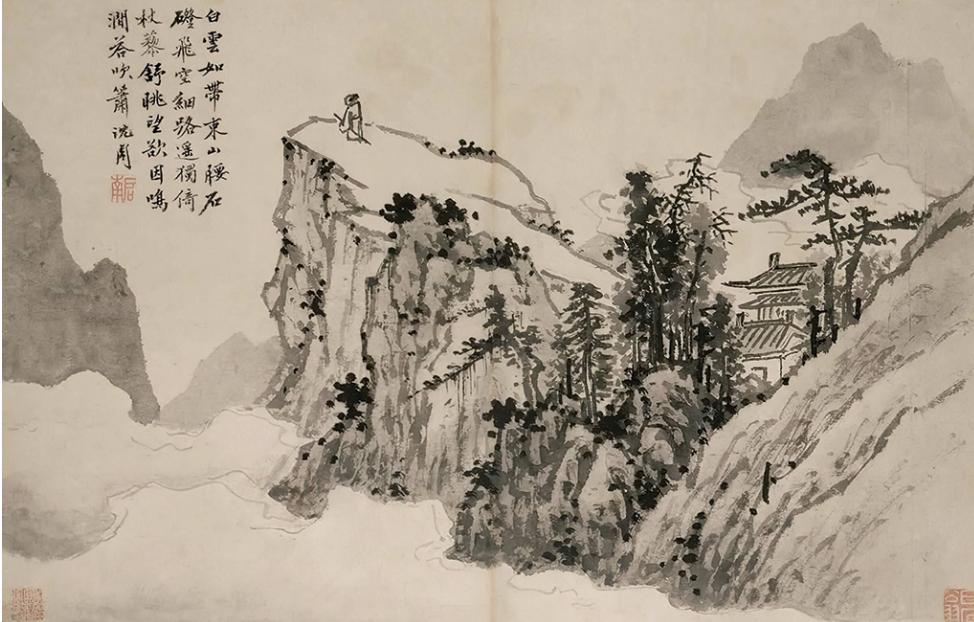 白雲如帶束山腰石
磴飛空細路遙獨倚
杖藜舒眺望欲因鳴
澗荅吹簫沈周
啟南